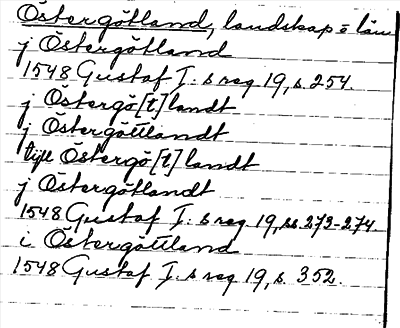 Östergötland, landskap o län
j Östergötland
1548 Gustaf I:s reg 19, s. 254.
j Östergö[t]landt
j Östergöttlandt
till Östergö[t]landt
j Östergötlandt
1548 Gustaf I:s reg 19, ss. 273-274.
i Östergöttland
1548 Gustaf I:s reg 19, s. 352.